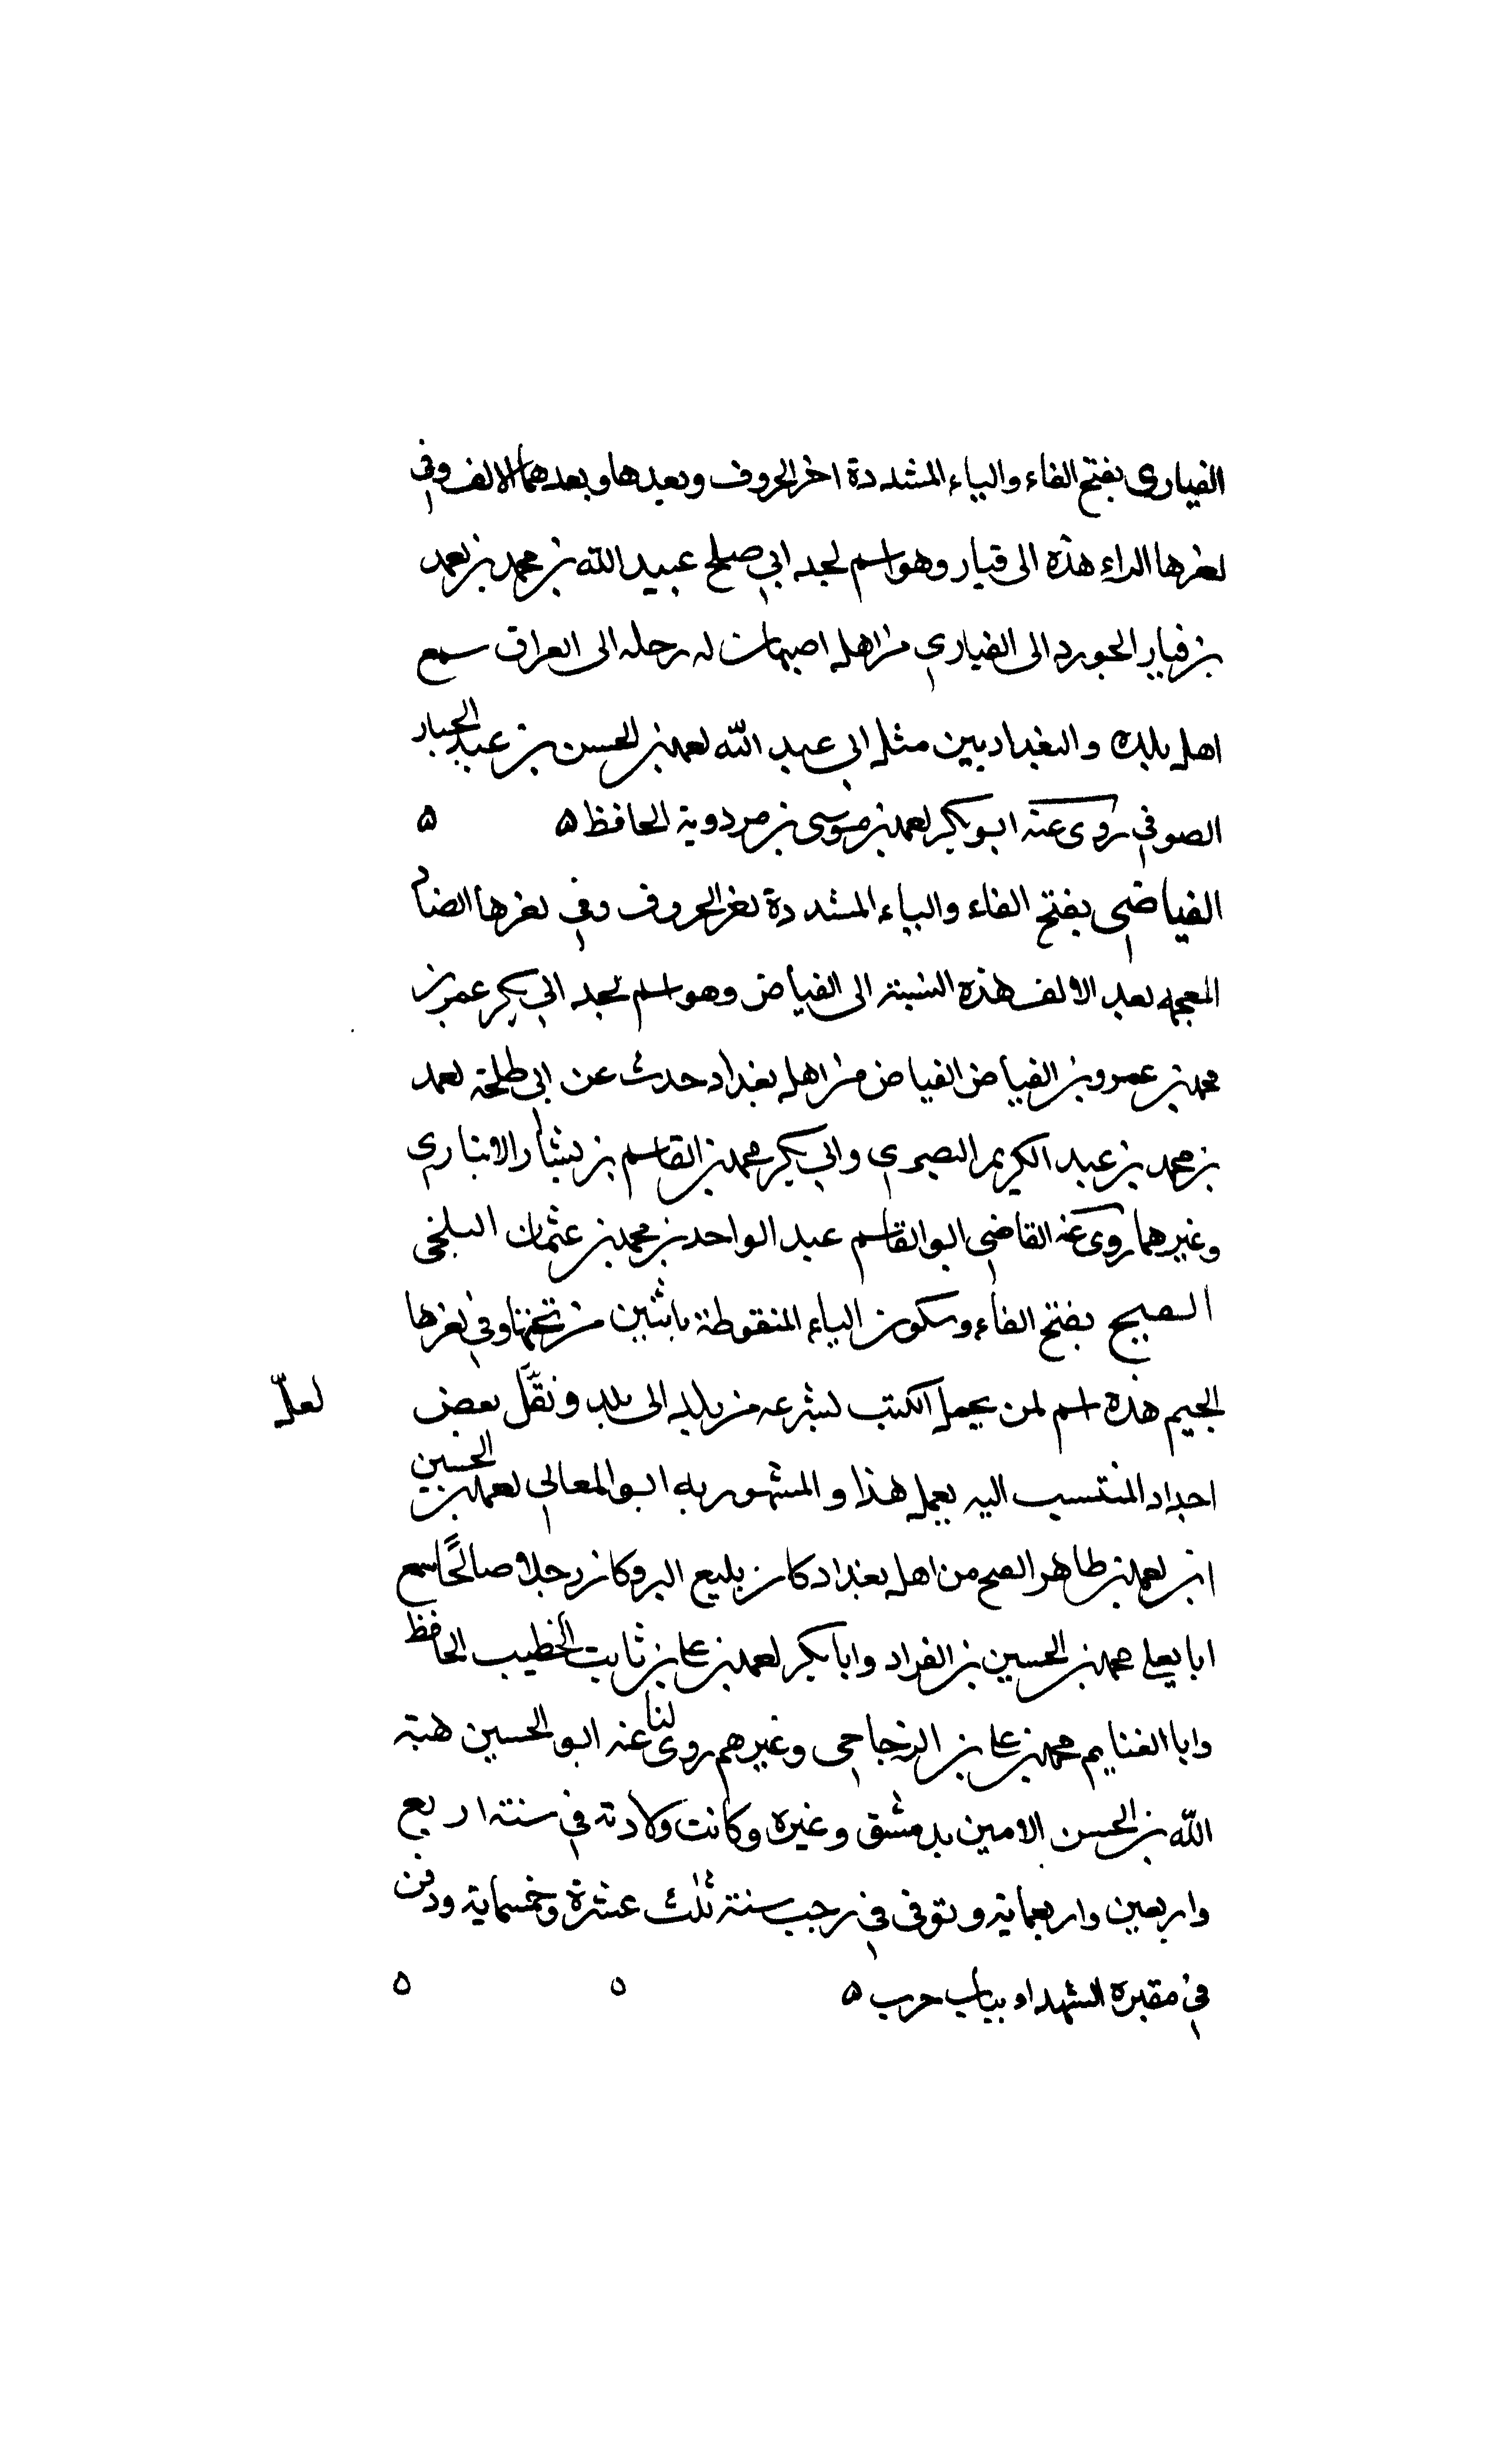 الفياري بفتح الفاء والياء المشددة اخر الحروف وبعدها وبعدهما الالف وفي
اخرها الراء هذه الى فيار وهو اسم لجد ابي صلح عبيد الله بن محمد بن احمد
بن فيار الجوردالى الفياري من اهل اصبهان له رحله الى العراق سمع
اهل بلده والبغداديين مثل ابي عبد الله احمد بن الحسن بن عبد الجبار
الصوفي روى عنه ابو بكر احمد بن موسى بن مردوية الحافظ ه ه
الفياضي بفتح الفاء والياء المشددة اخر الحروف وفي اخرها الضاد
المعجمه بعد الالف هذه النسبة الى الفياض وهو اسم لجد ابي بكر عمر بن
محمد بن عمرو بن الفياض الفياض من اهل بغداد حدث عن ابي طلحة احمد
بن محمد بن عبد الكريم البصري وابي بكر محمد بن القاسم بن بشار الانباري
وغيرهما روى عنه القاضي ابو القاسم عبد الواحد بن محمد بن عثمان البلخي
الفيج بفتح الفاء وسكون الياء المنقوطة باثنين من تحتها وفي اخرها
الجيم هذه اسم لمن يحمل الكتب لسرعه من بلد الى بلد ونقّل بعض
لعلّ
اجداد المنتسب اليه يعمل هذا والمشهور به ابو المعالي احمد بن الحسين
ابن احمد بن طاهر الفيج من اهل بغداد كان يبيع البر وكان رجلا صالحًا سمع
ابا يعلى محمد بن الحسين بن الفراد وابا بكر احمد بن علي بن ثابت الخطيب الحافظ
وابا الغنايم محمد بن علي بن الزجاجي وغيرهم روى لنا عنه ابو الحسين هبة
الله بن الحسن الامين بدمشق وغيره وكانت ولادته في سنة اربع
واربعين واربعماية وتوفى في رجب سنة ثلث عشرة وخمسماية ودفن
في مقبرة الشهداء بباب حرب ه ه ه